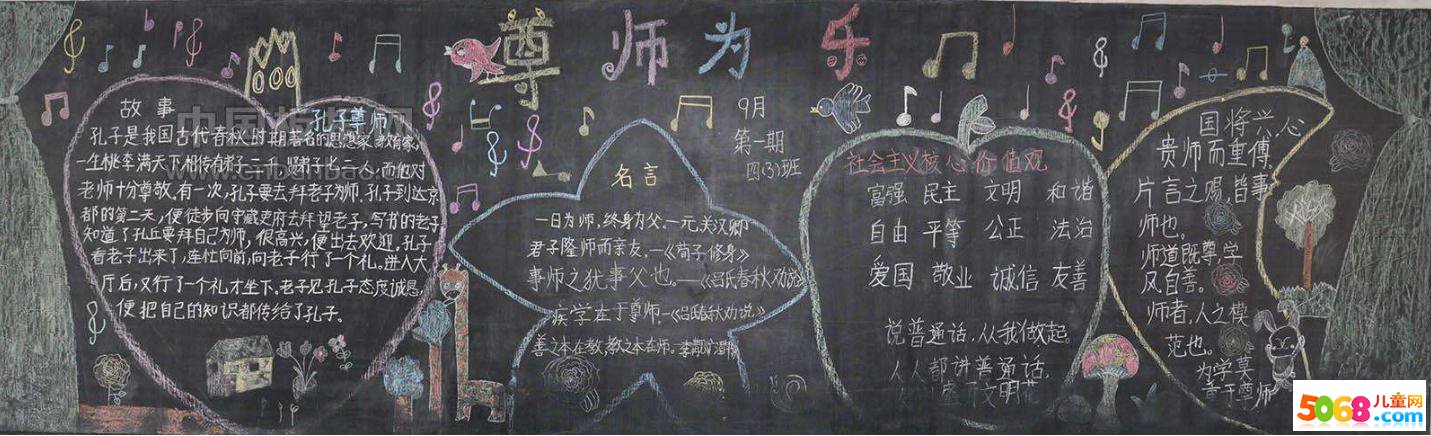 尊师为乐
9月
第一期
四(3)班
故事
孔子尊师
孔子是我国古代春秋时期著名的思想家、教育家,
一生桃李满天下,相传有弟子三千,贤弟子七十二人,而他对
老师十分尊敬.有一次,孔子要去拜老子为师.孔子到达京
都的第二天,便徒步向守藏史府去拜望老子,写书的老子
知道了孔丘要拜自己为师,很高兴,便出去欢迎.孔子
看老子出来了,连忙向前,向老子行了一个礼.进入大
厅后,又行了一个礼才坐下.老子见孔子态度诚恳,
便把自己的知识都传给了孔子.
名言
一日为师,终身为父.—元.关汉卿
君子隆师而亲友.—《荀子·修身》
事师之犹事父也.——《吕氏春秋·劝说》
疾学在于尊师.—《吕氏春秋·劝说》
善之本在教,教之本在师.—李觏
社会主义核心价值观
富强 民主 文明 和谐
自由 平等 公正 法治
爱国 敬业 诚信 友善
说普通话,从我做起.
人人都讲普通话,
文明花
国将兴,心
贵师而重傅.
片言之赐,皆事
师也.
师道既尊,学
风自善.
师者,人之模
范也.
为学莫
重于尊师
5068儿童网
.com